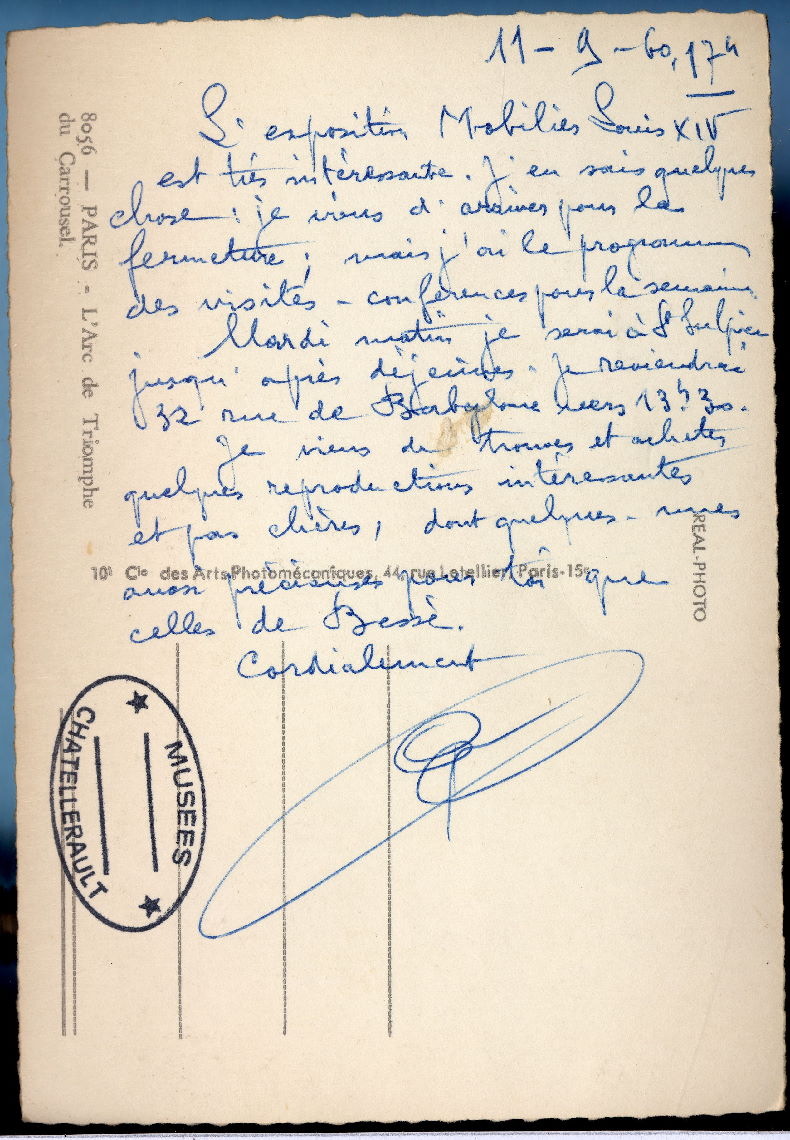 11 - 9 - 60, 17h
L'exposition Mobilier Louis XIV
est très intéressante. J'en sais quelque
chose : je viens d'arriver pour la
fermeture ; mais j'ai le programme
des visites - conférences pour la semaine.
Mardi matin je serai à St Sulpice
jusqu'après déjeuner. Je reviendrai
32 rue de Babylone vers 13h30.
Je viens de trouver et acheter
quelques reproductions intéressantes
et pas chères, dont quelques-unes
aussi précieuses pour toi que
celles de Bessé.
Cordialement
8056 — PARIS - L'Arc de Triomphe
du Carrousel.
Cie des Arts Photomécaniques, 44, rue Letellier, Paris-15e
REAL-PHOTO
MUSÉES
CHATELLERAULT